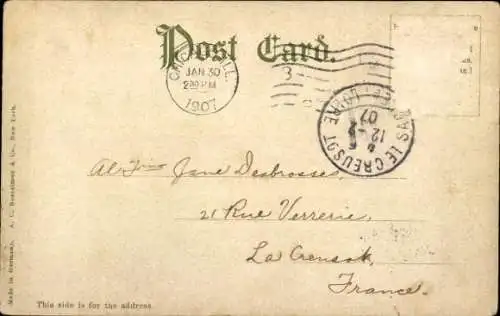 Post Card.
CHICAGO, ILL.
JAN 30
2 30 PM
1907
3
LE CREUSOT
SAÔNE-ET-LOIRE
12 - 2
07
Jane Desbrosses,
21 Rue Verrerie,
La Creusot,
France.
This side is for the address
Made in Germany. A. C. Bosselman & Co., New York.